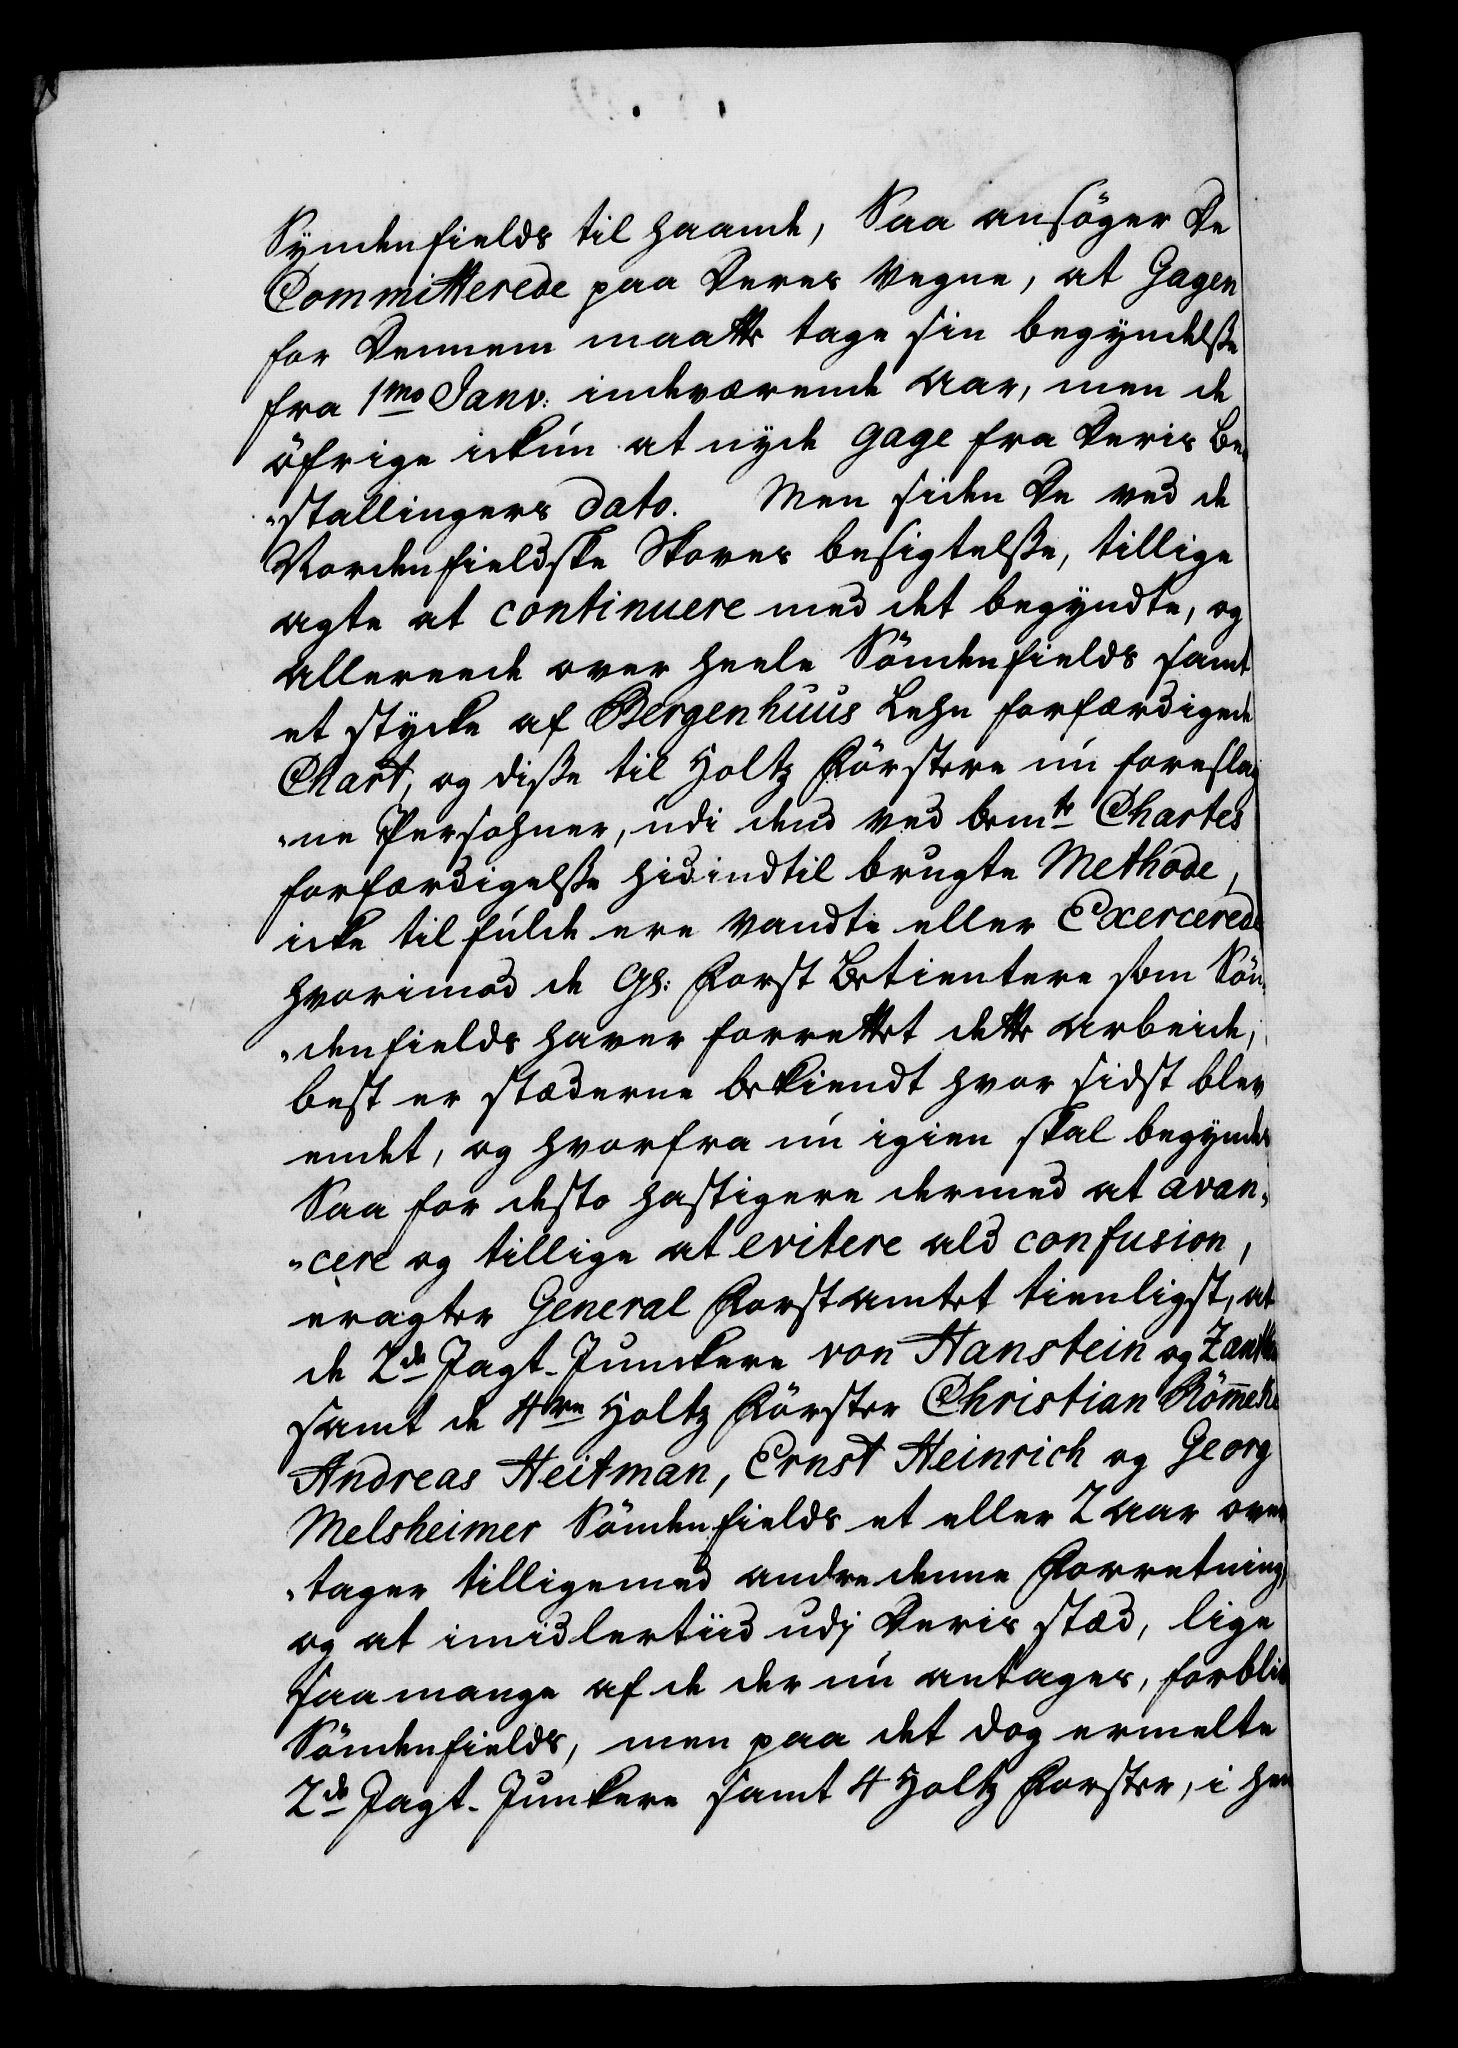 Syndenfields til haande, Saa ansöger De
Committerede paa Deres Vegne, at Gagen
for Dennem maatte tage sin begyndelße
fra 1mo Janv: indeværende Aar, men de
öfrige ickun at nyde gage fra Deris Be
„stallingers dato. Men siden De ved de
Nordenfieldske Skoves besigtelße, tillige
agte at continuere med det begyndte, og
allereede over heele Söndenfields samt
et stycke af Bergenhuus Lehn forfærdigede
Chart, og diße til Holtz Förstere nú foreslag
„ne Persohner, udi dend ved bemte Chartes
forfærdigelße hidindtil brugte Methode,
icke til fulde ere vandte eller Exercerede
hvorimod de Gl: Forst Betientere som Sön„
„denfields haver forrettet dette arbeide,
best er stæderne bekiendt hvor sidst blev
endet, og hvorfra nú igien skal begyndes
Saa for desto hastigere dermed at avan„
„cere og tillige at evitere ald confusion,
eragter General Forstamtet tienligst, at
de 2de Jagt-Junckere von Hanstein og
samt de 4re Holtz Förster Christian Römcke
Andreas Heitman, Ernst Heinrich og Georg
Melsheimer Söndenfields et eller 2 Aar over
„tager tilligemed andre denne Forretning,
og at imidlertiid udj Deris stæd, lige
saa mange af de der nú antages, forblive
Söndenfields, men paa det dog ermelte
2de Jagt-Junkere samt 4 Holtz Forster, i hen